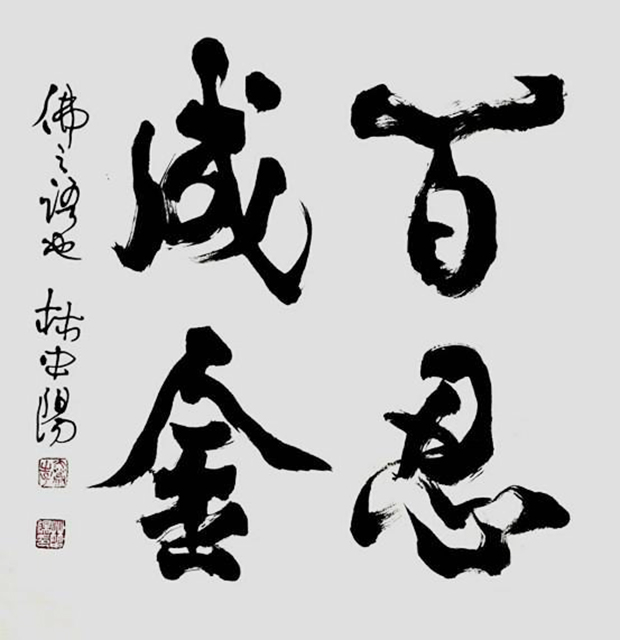 百忍
成金
佛之語也 林中陽